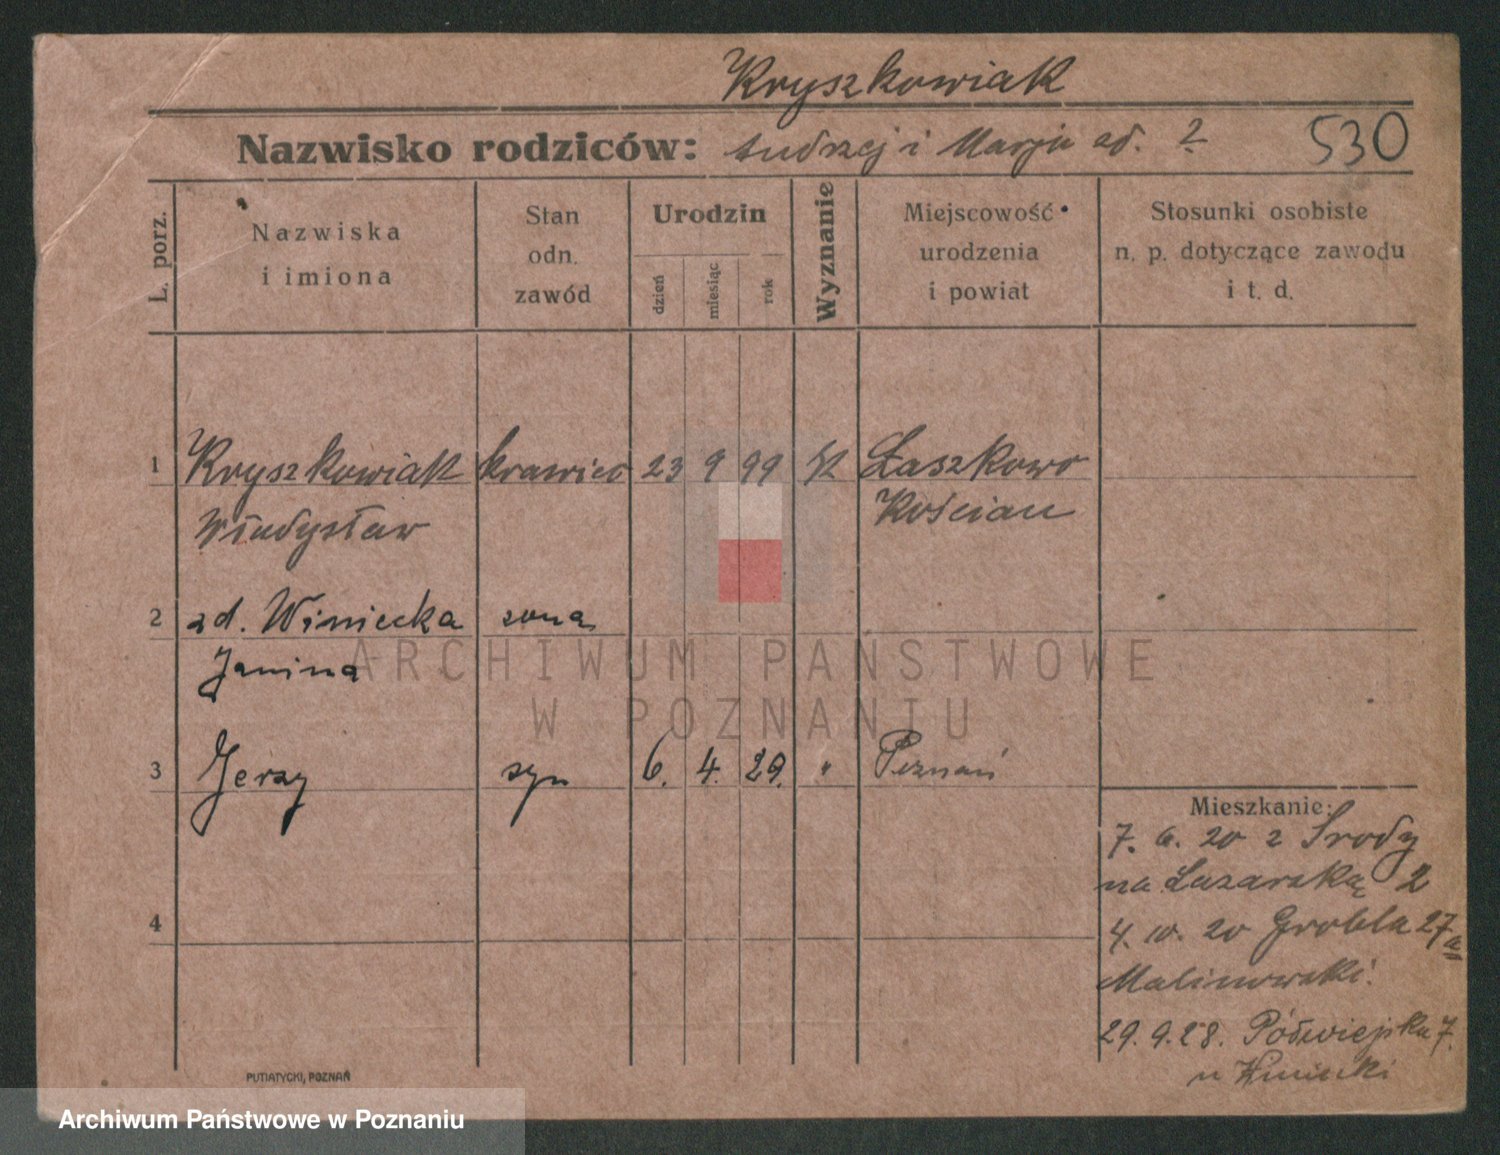 Kryszkowiak
Nazwisko rodziców: Andrzej i Marja zd. ? 530
L. porz.
Nazwiska
i imiona
Stan
odn.
zawód
Urodzin
dzień
miesiąc
rok
Wyznanie
Miejscowość
urodzenia
i powiat
Stosunki osobiste
n. p. dotyczące zawodu
i t. d.
1 Kryszkowiak krawiec 23 9 99 Łaszkowo
Władysław Kościan
2 zd. Winiecka żona
Janina
3 Jerzy syn 6. 4. 29. " Poznań
4
Mieszkanie:
7. 6. 20 z Środy
na Łazarską 2
4. 10. 20 Grobla 27a
Malinowski.
29. 9. 28. Półwiejska 7.
u Winiecki
PUTIATYCKI, POZNAŃ
ARCHIWUM PAŃSTWOWE
W POZNANIU
Archiwum Państwowe w Poznaniu